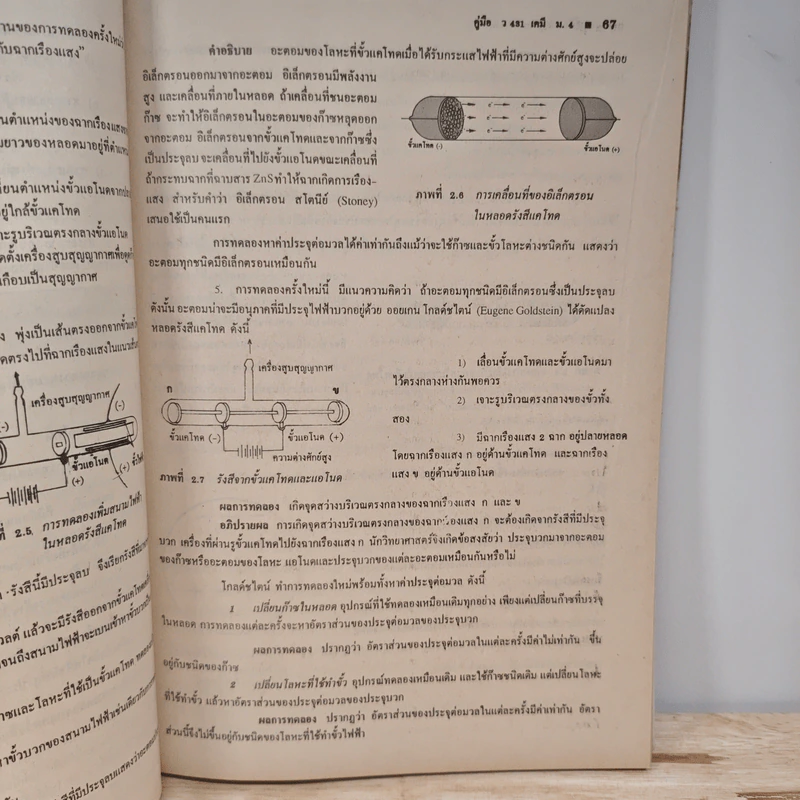 านของการทดลองครั้งใหม่
กับฉากเรืองแสง"
ยนตำแหน่งของฉากเรืองแสง
มยาวของหลอดมาอยู่ที่ตำแห
ลี่ยนตำแหน่งขั้วแอโนดจาก
อยู่ใกล้ขั้วแคโทด
าะรูบริเวณตรงกลางขั้วแอโนด
ดตั้งเครื่องสูบสุญญากาศเพื่อ
เกือบเป็นสุญญากาศ
ง พุ่งเป็นเส้นตรงออกจากขั้ว
ดตรงไปที่ฉากเรืองแสงในแนวเส้น
เครื่องสูบสุญญากาศ
(-)
(-)
ขั้วแอโนด
(+)
(+)
ที่ 2.5. การทดลองเพิ่มสนามไฟฟ้า
ในหลอดรังสีแคโทด
รังสีนี้มีประจุลบ จึงเรียกรังสี
วลต์ แล้วจะมีรังสีออกจากขั้วแคโทด
จนถึงสนามไฟฟ้าจะเบนเข้าหาขั้วบวก
าซและโลหะที่ใช้เป็นขั้วแคโทด
าขั้วบวกของสนามไฟฟ้าเช่นเดียวกับ
สีที่มีประจุลบแสดงว่าอะตอม
คู่มือ ว 431 เคมี ม. 4 ■ 67
คำอธิบาย อะตอมของโลหะที่ขั้วแคโทดเมื่อได้รับกระแสไฟฟ้าที่มีความต่างศักย์สูงจะปล่อย
อิเล็กตรอนออกมาจากอะตอม อิเล็กตรอนมีพลังงาน
สูง และเคลื่อนที่ภายในหลอด ถ้าเคลื่อนที่ชนอะตอม
ก๊าซ จะทำให้อิเล็กตรอนในอะตอมของก๊าซหลุดออก
จากอะตอม อิเล็กตรอนจากขั้วแคโทดและจากก๊าซซึ่ง
เป็นประจุลบ จะเคลื่อนที่ไปยังขั้วแอโนดขณะเคลื่อนที่
ถ้ากระทบฉากที่ฉาบสาร ZnS ทำให้ฉากเกิดการเรือง-
แสง สำหรับคำว่า อิเล็กตรอน สโตนีย์ (Stoney)
เสนอใช้เป็นคนแรก
ขั้วแคโทด (-)
ขั้วแอโนด (+)
ภาพที่ 2.6 การเคลื่อนที่ของอิเล็กตรอน
ในหลอดรังสีแคโทด
การทดลองหาค่าประจุต่อมวลได้ค่าเท่ากันถึงแม้ว่าจะใช้ก๊าซและขั้วโลหะต่างชนิดกัน แสดงว่า
อะตอมทุกชนิดมีอิเล็กตรอนเหมือนกัน
5. การทดลองครั้งใหม่นี้ มีแนวความคิดว่า ถ้าอะตอมทุกชนิดมีอิเล็กตรอนซึ่งเป็นประจุลบ
ดังนั้น อะตอมน่าจะมีอนุภาคที่มีประจุไฟฟ้าบวกอยู่ด้วย ออยเกน โกลด์ชไตน์ (Eugene Goldstein) ได้ดัดแปลง
หลอดรังสีแคโทด ดังนี้
เครื่องสูบสุญญากาศ
ก
ข
ขั้วแคโทด (-)
ขั้วแอโนด (+)
ความต่างศักย์สูง
ภาพที่ 2.7 รังสีจากขั้วแคโทดและแอโนด
1) เลื่อนขั้วแคโทดและขั้วแอโนดมา
ไว้ตรงกลางห่างกันพอควร
2) เจาะรูบริเวณตรงกลางของขั้วทั้ง
สอง
3) มีฉากเรืองแสง 2 ฉาก อยู่ปลายหลอด
โดยฉากเรืองแสง ก อยู่ด้านขั้วแคโทด และฉากเรือง
แสง ข อยู่ด้านขั้วแอโนด
ผลการทดลอง เกิดจุดสว่างบริเวณตรงกลางของฉากเรืองแสง ก และ ข
อภิปรายผล การเกิดจุดสว่างบริเวณตรงกลางของฉากเรืองแสง ก จะต้องเกิดจากรังสีที่มีประจุ
บวก เคลื่อนที่ผ่านรูขั้วแคโทดไปยังฉากเรืองแสง ก นักวิทยาศาสตร์จึงเกิดข้อสงสัยว่า ประจุบวกมาจากอะตอม
ของก๊าซหรืออะตอมของโลหะ แอโนดและประจุบวกของแต่ละอะตอมเหมือนกันหรือไม่
โกลด์ชไตน์ ทำการทดลองใหม่พร้อมทั้งหาค่าประจุต่อมวล ดังนี้
1 เปลี่ยนก๊าซในหลอด อุปกรณ์ที่ใช้ทดลองเหมือนเดิมทุกอย่าง เพียงแต่เปลี่ยนก๊าซที่บรรจุ
ในหลอด การทดลองแต่ละครั้งจะหาอัตราส่วนของประจุต่อมวลของประจุบวก
ผลการทดลอง ปรากฏว่า อัตราส่วนของประจุต่อมวลในแต่ละครั้งมีค่าไม่เท่ากัน ขึ้น
อยู่กับชนิดของก๊าซ
2 เปลี่ยนโลหะที่ใช้ทำขั้ว อุปกรณ์ทดลองเหมือนเดิม และใช้ก๊าซชนิดเดิม แต่เปลี่ยนโลหะ
ที่ใช้ทำขั้ว แล้วหาอัตราส่วนของประจุต่อมวลของประจุบวก
ผลการทดลอง ปรากฏว่า อัตราส่วนของประจุต่อมวลในแต่ละครั้งมีค่าเท่ากัน อัตรา
ส่วนนี้จึงไม่ขึ้นอยู่กับชนิดของโลหะที่ใช้ทำขั้วไฟฟ้า